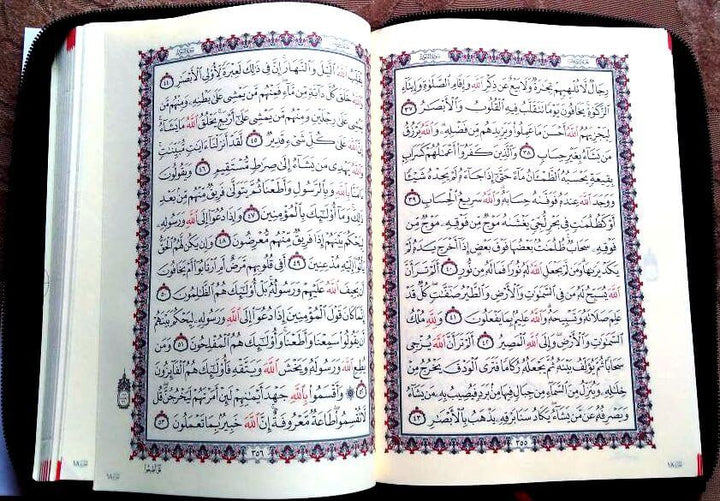 رِجَالٌ لَّا تُلْهِيهِمْ تِجَٰرَةٌ وَلَا بَيْعٌ عَن ذِكْرِ ٱللَّهِ وَإِقَامِ ٱلصَّلَوٰةِ وَإِيتَآءِ
ٱلزَّكَوٰةِ يَخَافُونَ يَوْمًا تَتَقَلَّبُ فِيهِ ٱلْقُلُوبُ وَٱلْأَبْصَٰرُ ٣٧
لِيَجْزِيَهُمُ ٱللَّهُ أَحْسَنَ مَا عَمِلُوا۟ وَيَزِيدَهُم مِّن فَضْلِهِۦ وَٱللَّهُ يَرْزُقُ
مَن يَشَآءُ بِغَيْرِ حِسَابٍ ٣٨ وَٱلَّذِينَ كَفَرُوٓا۟ أَعْمَٰلُهُمْ كَسَرَابٍۭ
بِقِيعَةٍ يَحْسَبُهُ ٱلظَّمْـَٔانُ مَآءً حَتَّىٰٓ إِذَا جَآءَهُۥ لَمْ يَجِدْهُ شَيْـًٔا
وَوَجَدَ ٱللَّهَ عِندَهُۥ فَوَفَّىٰهُ حِسَابَهُۥ وَٱللَّهُ سَرِيعُ ٱلْحِسَابِ ٣٩
أَوْ كَظُلُمَٰتٍ فِى بَحْرٍ لُّجِّىٍّ يَغْشَىٰهُ مَوْجٌ مِّن فَوْقِهِۦ مَوْجٌ مِّن
فَوْقِهِۦ سَحَابٌ ظُلُمَٰتٌۢ بَعْضُهَا فَوْقَ بَعْضٍ إِذَآ أَخْرَجَ يَدَهُۥ لَمْ
يَكَدْ يَرَىٰهَا وَمَن لَّمْ يَجْعَلِ ٱللَّهُ لَهُۥ نُورًا فَمَا لَهُۥ مِن نُّورٍ ٤٠ أَلَمْ تَرَ أَنَّ
ٱللَّهَ يُسَبِّحُ لَهُۥ مَن فِى ٱلسَّمَٰوَٰتِ وَٱلْأَرْضِ وَٱلطَّيْرُ صَٰٓفَّٰتٍ كُلٌّ قَدْ
عَلِمَ صَلَاتَهُۥ وَتَسْبِيحَهُۥ وَٱللَّهُ عَلِيمٌۢ بِمَا يَفْعَلُونَ ٤١ وَلِلَّهِ مُلْكُ
ٱلسَّمَٰوَٰتِ وَٱلْأَرْضِ وَإِلَى ٱللَّهِ ٱلْمَصِيرُ ٤٢ أَلَمْ تَرَ أَنَّ ٱللَّهَ يُزْجِى
سَحَابًا ثُمَّ يُؤَلِّفُ بَيْنَهُۥ ثُمَّ يَجْعَلُهُۥ رُكَامًا فَتَرَى ٱلْوَدْقَ يَخْرُجُ مِنْ
خِلَٰلِهِۦ وَيُنَزِّلُ مِنَ ٱلسَّمَآءِ مِن جِبَالٍ فِيهَا مِنۢ بَرَدٍ فَيُصِيبُ بِهِۦ مَن يَشَآءُ
وَيَصْرِفُهُۥ عَن مَّن يَشَآءُ يَكَادُ سَنَا بَرْقِهِۦ يَذْهَبُ بِٱلْأَبْصَٰرِ ٤٣
٣٥٥
يُقَلِّبُ ٱللَّهُ ٱلَّيْلَ وَٱلنَّهَارَ إِنَّ فِى ذَٰلِكَ لَعِبْرَةً لِّأُو۟لِى ٱلْأَبْصَٰرِ ٤٤
وَٱللَّهُ خَلَقَ كُلَّ دَآبَّةٍ مِّن مَّآءٍ فَمِنْهُم مَّن يَمْشِى عَلَىٰ بَطْنِهِۦ وَمِنْهُم مَّن
يَمْشِى عَلَىٰ رِجْلَيْنِ وَمِنْهُم مَّن يَمْشِى عَلَىٰٓ أَرْبَعٍ يَخْلُقُ ٱللَّهُ مَا يَشَآءُ
إِنَّ ٱللَّهَ عَلَىٰ كُلِّ شَىْءٍ قَدِيرٌ ٤٥ لَّقَدْ أَنزَلْنَآ ءَايَٰتٍ مُّبَيِّنَٰتٍ
وَٱللَّهُ يَهْدِى مَن يَشَآءُ إِلَىٰ صِرَٰطٍ مُّسْتَقِيمٍ ٤٦ وَيَقُولُونَ
ءَامَنَّا بِٱللَّهِ وَبِٱلرَّسُولِ وَأَطَعْنَا ثُمَّ يَتَوَلَّىٰ فَرِيقٌ مِّنْهُم مِّنۢ بَعْدِ
ذَٰلِكَ وَمَآ أُو۟لَٰٓئِكَ بِٱلْمُؤْمِنِينَ ٤٧ وَإِذَا دُعُوٓا۟ إِلَى ٱللَّهِ وَرَسُولِهِۦ
لِيَحْكُمَ بَيْنَهُمْ إِذَا فَرِيقٌ مِّنْهُم مُّعْرِضُونَ ٤٨ وَإِن يَكُن لَّهُمُ ٱلْحَقُّ
يَأْتُوٓا۟ إِلَيْهِ مُذْعِنِينَ ٤٩ أَفِى قُلُوبِهِم مَّرَضٌ أَمِ ٱرْتَابُوٓا۟ أَمْ يَخَافُونَ
أَن يَحِيفَ ٱللَّهُ عَلَيْهِمْ وَرَسُولُهُۥ بَلْ أُو۟لَٰٓئِكَ هُمُ ٱلظَّٰلِمُونَ ٥٠
إِنَّمَا كَانَ قَوْلَ ٱلْمُؤْمِنِينَ إِذَا دُعُوٓا۟ إِلَى ٱللَّهِ وَرَسُولِهِۦ لِيَحْكُمَ بَيْنَهُمْ
أَن يَقُولُوا۟ سَمِعْنَا وَأَطَعْنَا وَأُو۟لَٰٓئِكَ هُمُ ٱلْمُفْلِحُونَ ٥١ وَمَن
يُطِعِ ٱللَّهَ وَرَسُولَهُۥ وَيَخْشَ ٱللَّهَ وَيَتَّقْهِ فَأُو۟لَٰٓئِكَ هُمُ ٱلْفَآئِزُونَ
٥٢ ۞ وَأَقْسَمُوا۟ بِٱللَّهِ جَهْدَ أَيْمَٰنِهِمْ لَئِنْ أَمَرْتَهُمْ لَيَخْرُجُنَّ قُل
لَّا تُقْسِمُوا۟ طَاعَةٌ مَّعْرُوفَةٌ إِنَّ ٱللَّهَ خَبِيرٌۢ بِمَا تَعْمَلُونَ ٥٣
٣٥٦